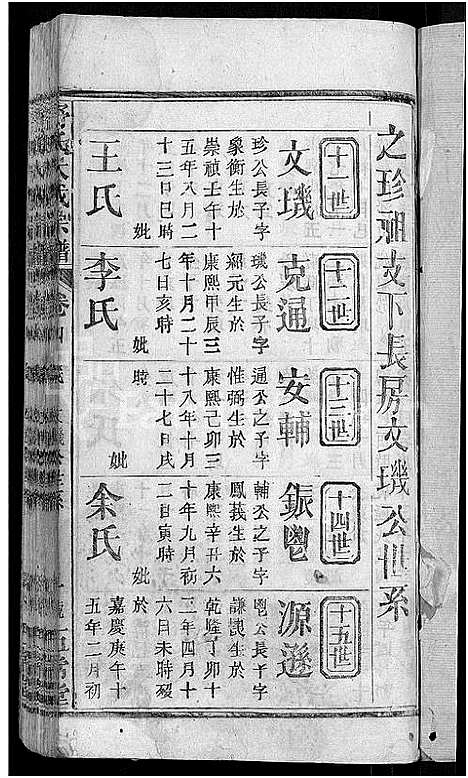 之珍祖支下長房文璣公世系
十一世
文璣
珍公長子字
象衡生於
崇禎壬午十
五年八月二
十三日巳時
妣
王氏
十二世
克通
璣公長子字
紹元生於
康熙甲辰三
年十月二十
七日亥時
妣
李氏
十三世
安輔
通公之子字
惟弼生於
康熙己卯三
十八年十月
二十七日戌
時
妣
十四世
鋠鬯
輔公之子字
鳳義生於
康熙辛丑六
十年九月初
二日寅時
妣
余氏
十五世
源遜
鬯公長子字
謙 生於
乾隆丁卯十
二年四月十
六日未時歿
於
嘉慶庚午十
五年二月初
大成宗譜
卷四